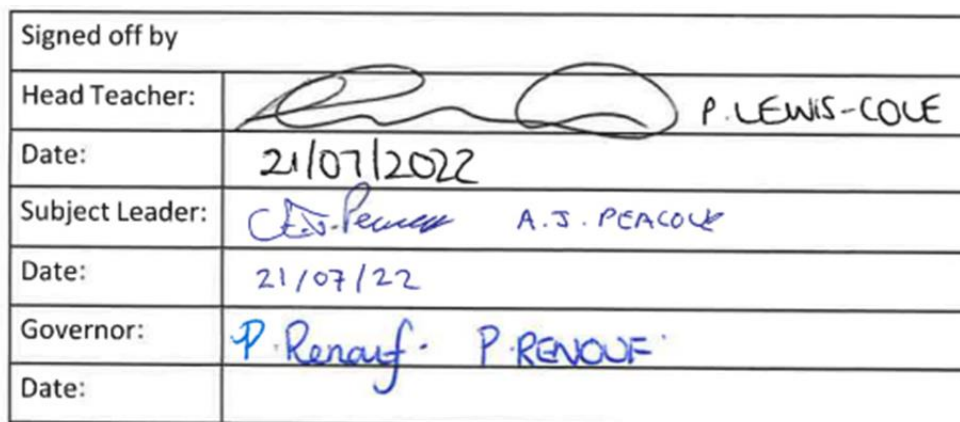 Signed off by
Head Teacher: P. LEWIS-COLE
Date: 21/07/2022
Subject Leader: A.J. PEACOCK
Date: 21/07/22
Governor: P. Renouf. P. RENOUF
Date: